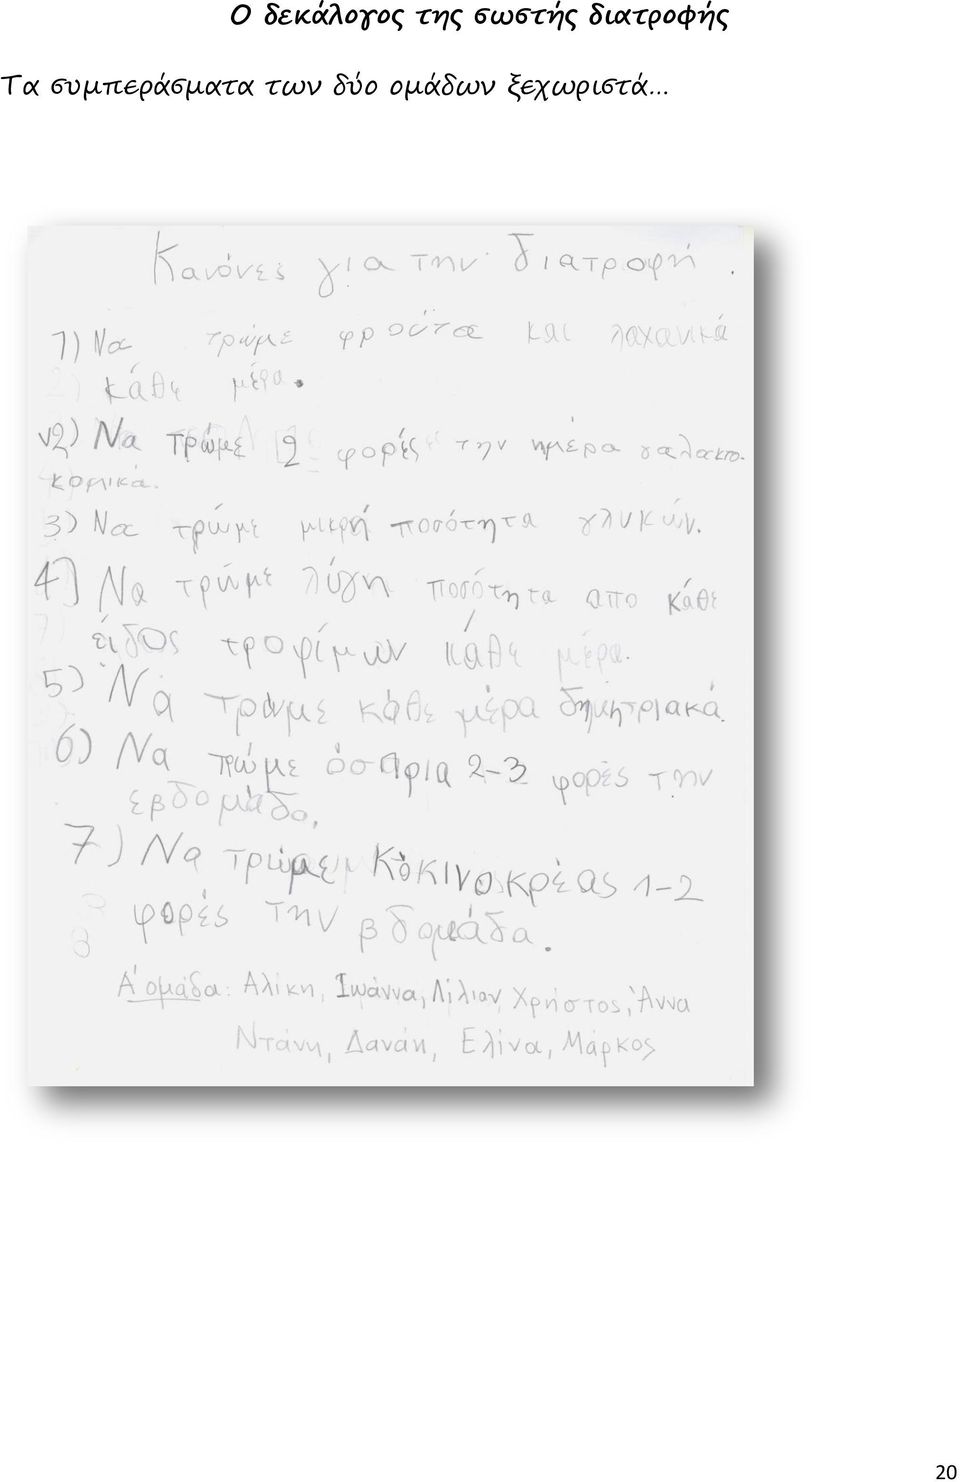 Ο δεκάλογος της σωστής διατροφής
Τα συμπεράσματα των δύο ομάδων ξεχωριστά...
Κανόνες για την διατροφή.
1) Να τρώμε φρούτα και λαχανικά
κάθε μέρα.
2) Να τρώμε 2 φορές την ημέρα γαλακτο-
κομικά.
3) Να τρώμε μικρή ποσότητα γλυκών.
4) Να τρώμε λύγη ποσότητα απο κάθε
είδος τροφίμων κάθε μέρα.
5) Να τρώμε κάθε μέρα δημητριακά.
6) Να τρώμε όσπρια 2-3 φορές την
εβδομάδο.
7) Να τρώμε κόκινο κρέας 1-2
φορές την βδομάδα.
Α' ομάδα: Αλίκη, Ιωάννα, Λίλιαν, Χρήστος, Άννα
Ντάνη, Δανάη, Ελίνα, Μάρκος
20